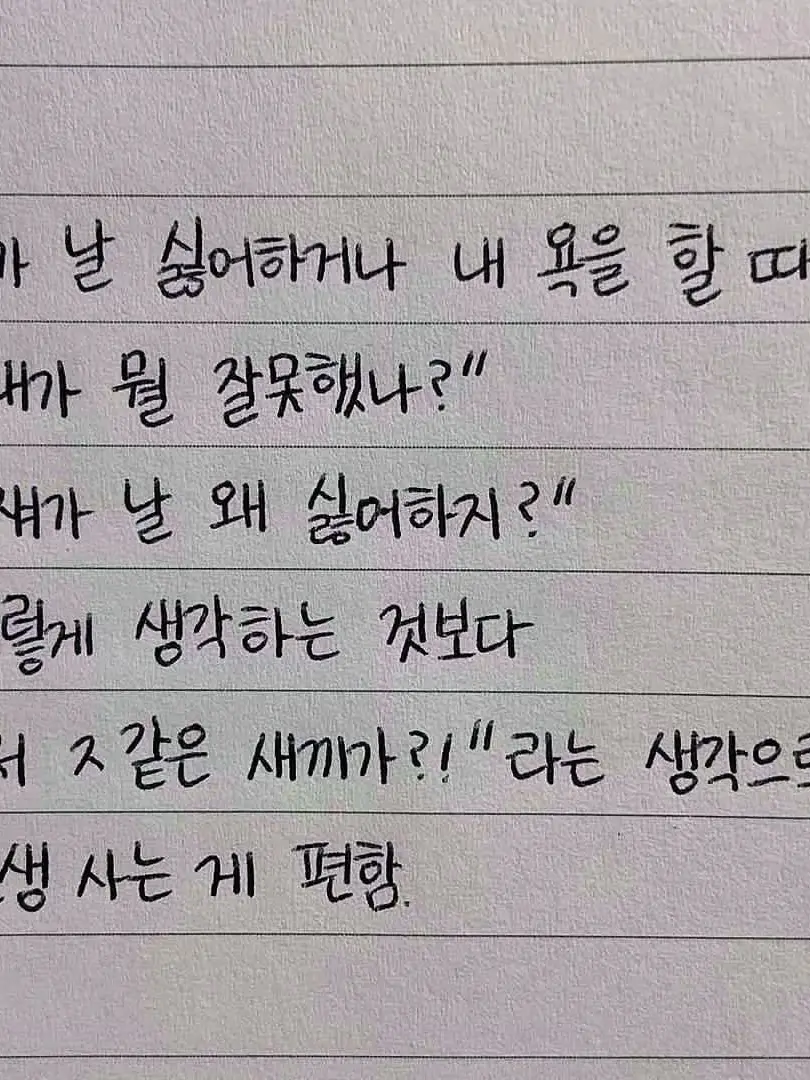 가 날 싫어하거나 내 욕을 할 때
내가 뭘 잘못했나?"
쟤가 날 왜 싫어하지?"
렇게 생각하는 것보다
저 ㅈ같은 새끼가?!"라는 생각으로
생 사는 게 편함.